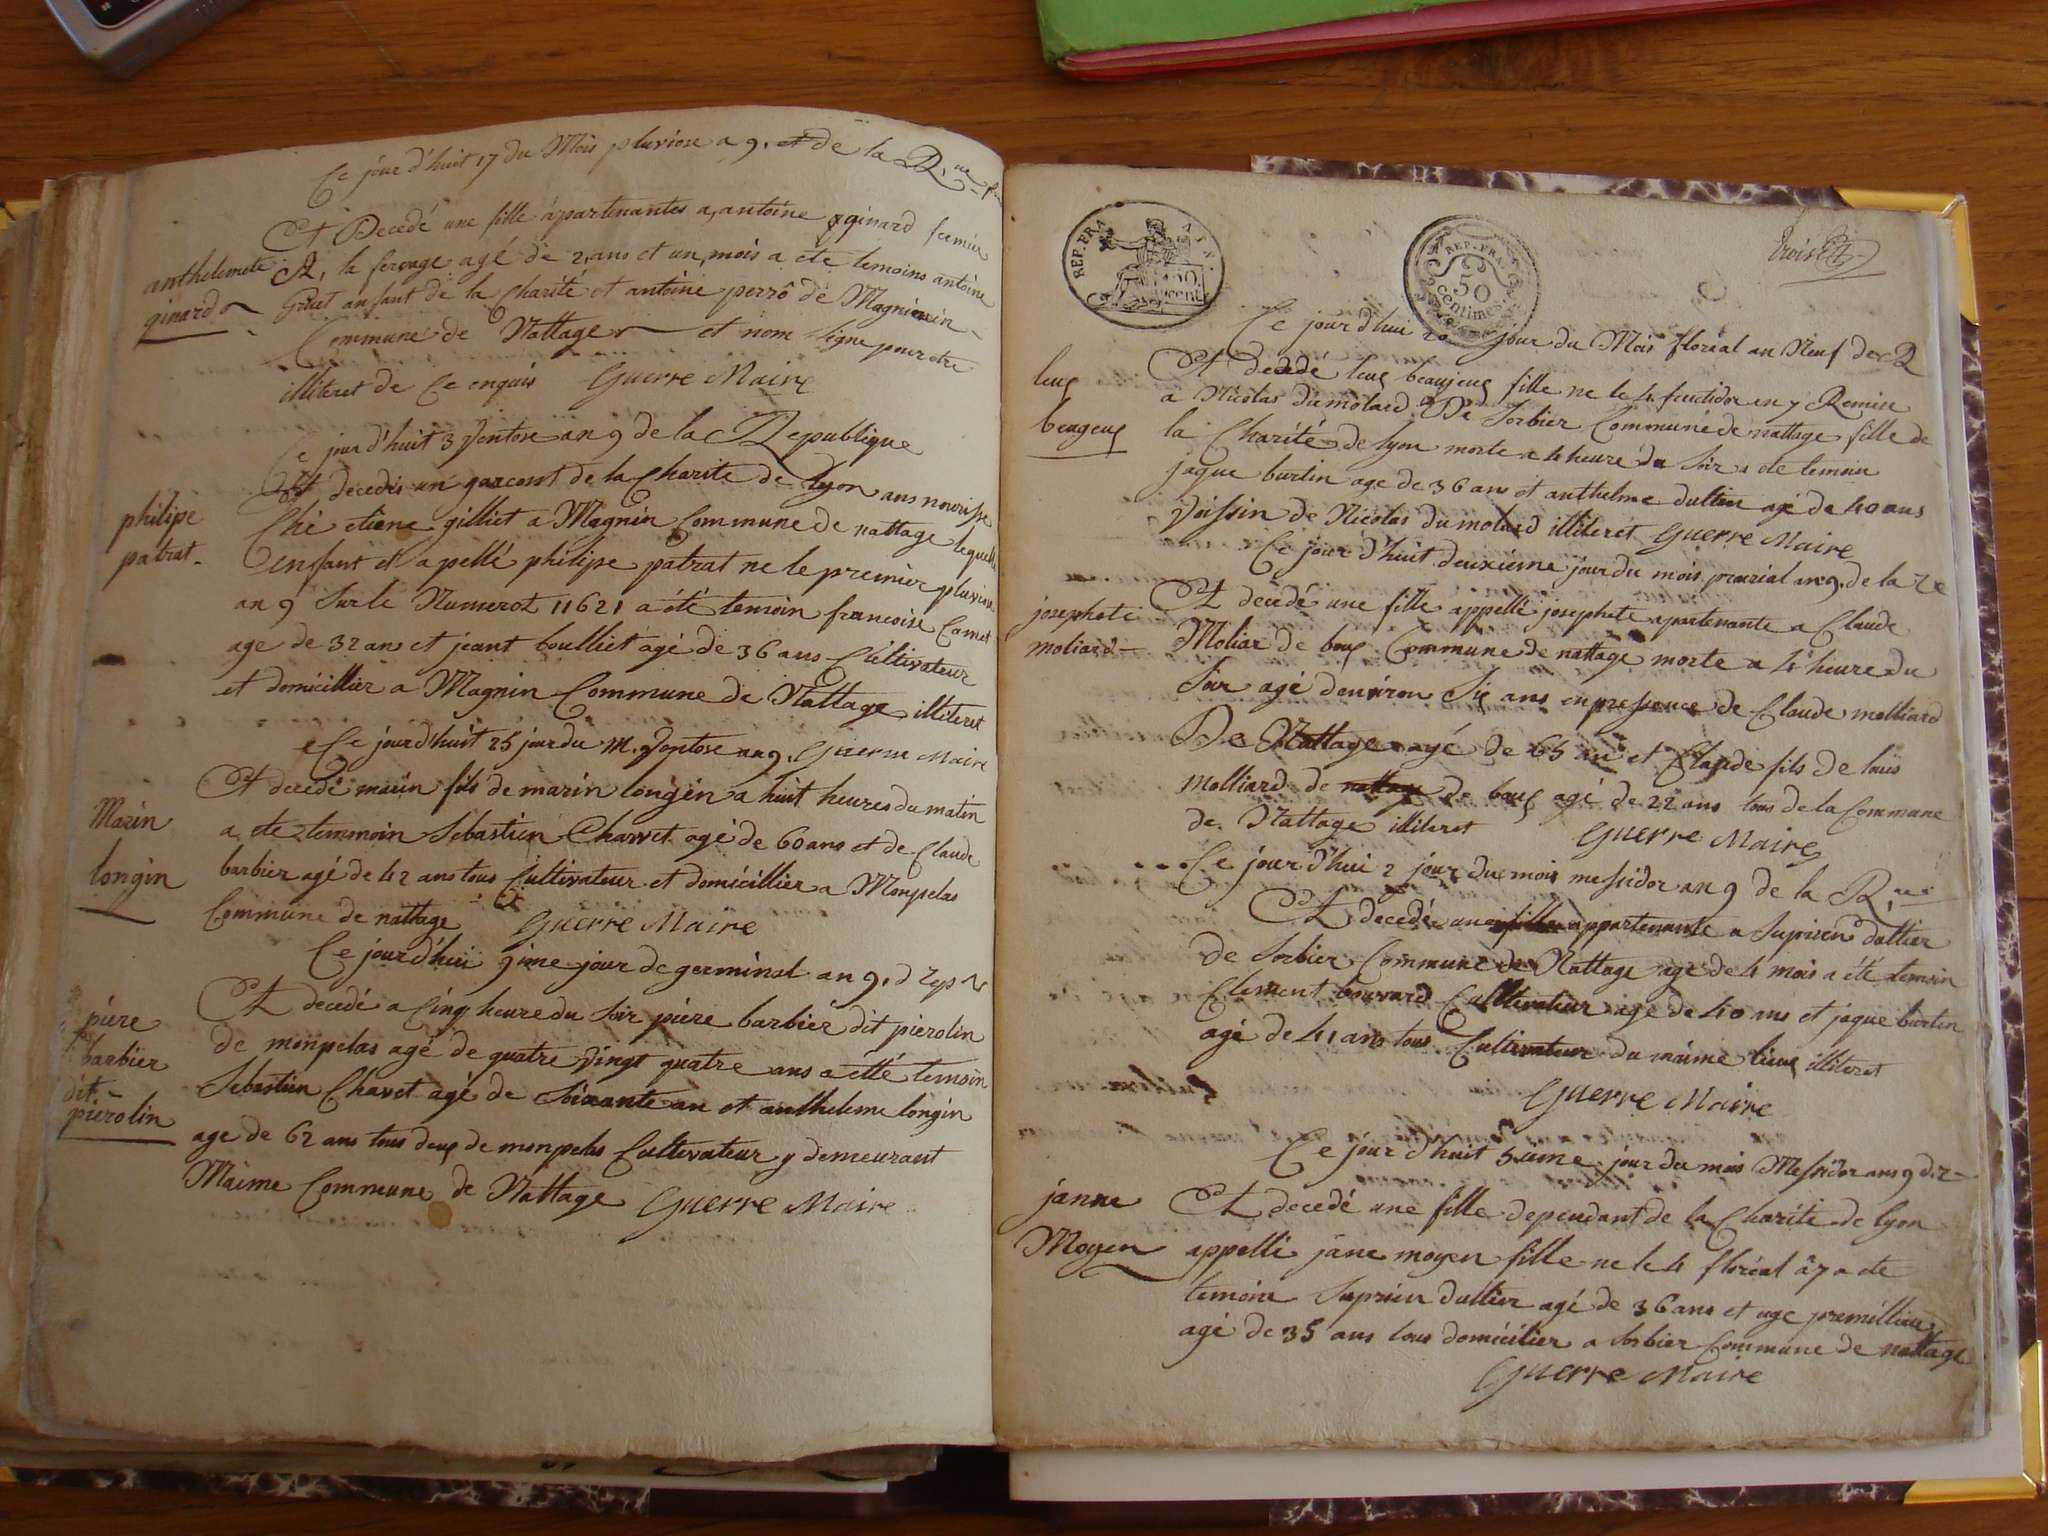 Ce jour d'huit 17 du Mois pluviose a 9. de la R.
Et Decedé une fille apartenantes a, antoine ginard fermier
anthelemete
ginard
R, la ferouge agé de 2, ans et un, mois a ete temoins antoine
anfant de la Charité et antoine perrô de Magnin
Commune de Nattage et nom signe pour etre
illiteret de Ce enquis Guerre Maire
Ce jour d'huit 3 Ventose an 9 de la Republique
philipe
patrat.
Et decedés un garcont de la Charite de lyon ans nourisse
Ché etiene gilliet a Magnin Commune de nattage lequelle
enfant et apellé philipe patrat ne le premier pluviose
an 9 sur le Numerot 11621 a été temoin francoise Comet
age de 32 ans et jeant boulliet agé de 36 ans Cultivateur
et domicillier a Magnin Commune de Nattage illiteret
Ce jour d'huit 25 jour du m. Ventose an 9. Guerre Maire
Marin
longin
Et decedé marin fils de marin longin a huit heures du matin
a ete temmoin Sebastien Charvet agé de 60 ans et de Claude
barbier agé de 42 ans tous Cultivateur et domicillier a Monpelas
Commune de nattage Guerre Maire
Ce jour d'hui 9 ime jour de germinal an 9. d
piére
barbier
dit
piérolin
Et decedé a Cinq heure du soir piére barbiér dit piérolin
de monpelas agé de quatre vingt quatre ans a etté temoin
Sebastien Chavet agé de soixante an et anthelme longin
age de 62 ans tous deux de monpelas Cultivateur y demeurant
Maime Commune de Nattage Guerre Maire
REP. FRA
50
cent
REP. FRA.
50
centimes
Ce jour d'hui 20 jour du Mois floréal an Neuf de R
leux
beugeux
Et decedé leux beaujeux fille ne le 4 fructidor an 7 Remise
a Nicolas dumolard De Sorbier Commune de nattage fille de
la Charité de lyon morte a 4 heure du soir a ete temoin
jaque burtin age de 36 ans et anthelme dultier agé de 40 ans
voissin de Nicolas dumolard illiteret Guerre Maire
Ce jour d'huit deuxiéme jour du mois prairial an 9. de la
josephete
moliard
Et decedé une fille appellé josephete apartenante a Claude
Moliar de boux Commune de nattage morte a 4 heure du
soir agé d'environ six ans en pressence de Claude molliard
De Nattage agé de 65 an et Claude fils de louis
molliard de nattage de boux agé de 22 ans tous de la Commune
de Nattage illiteret Guerre Maire
Ce jour d'hui 2 jour du mois messidor an 9 de la R.
Et decedé une fille appartenante a Suprien dultier
de Sorbier Commune de Nattage age de 4 mois a été temoin
Clement bouvard Cultivateur age de 40 ans et jaque burtin
agé de 41 ans tous Cultivateur du maime lieux illiteret
Guerre Maire
Ce jour d'huit 5 ime jour du mois Messidor ans 9 d
janne
Moyen
Et decedé une fille dependant de la Charité de lyon
appellé jane moyen fille ne le 4 floréal a 7 a ete
temoins Suprien dultier agé de 36 ans et
agé de 35 ans tous domicilier a Sorbier Commune de nattage
Guerre Maire